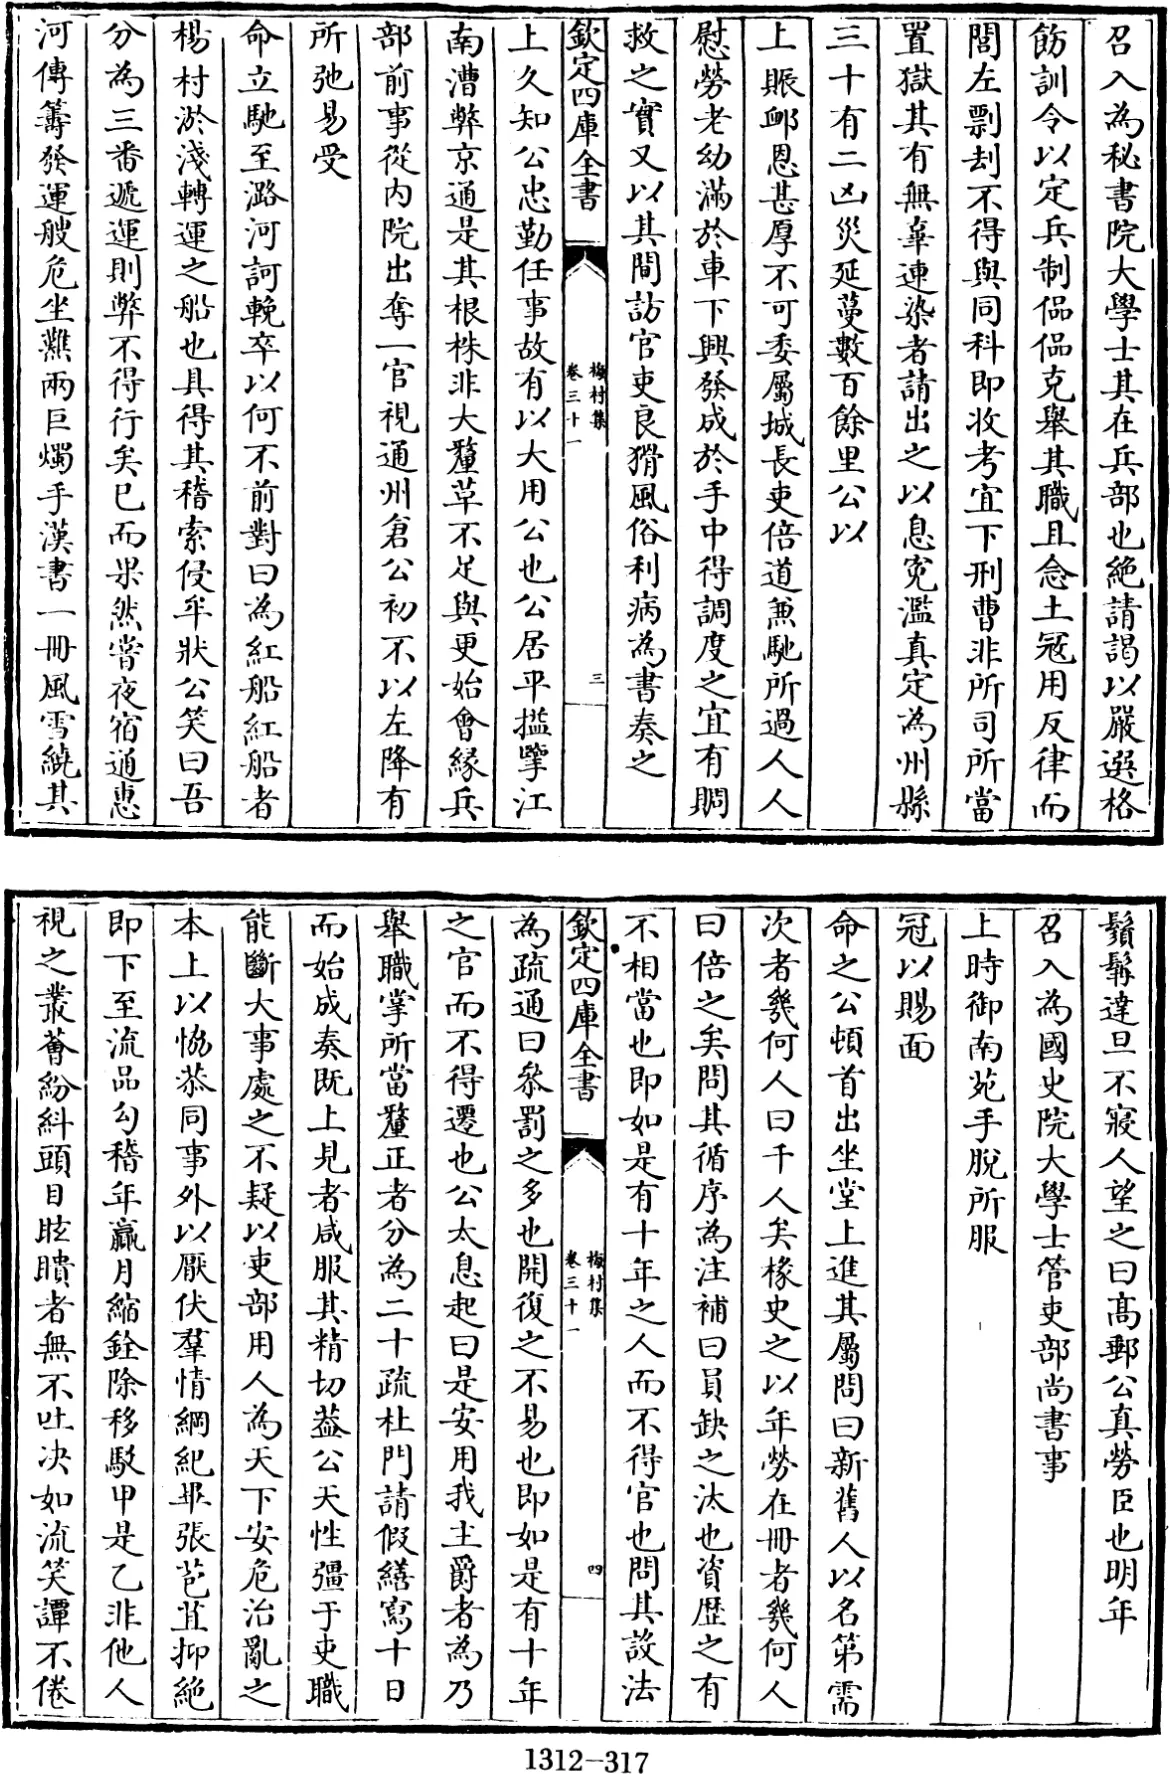 召入為秘書院大學士其在兵部也絶請謁以嚴選格
飭訓令以定兵制偘偘克舉其職且念土冦用反律而
閭左剽刦不得與同科即收考宜下刑曹非所司所當
置獄其有無辜連染者請出之以息寃濫真定為州縣
三十有二凶災延蔓數百餘里公以
上賑䘏恩甚厚不可委屬城長吏倍道兼馳所過人人
慰勞老幼滿於車下興發成於手中得調度之宜有賙
救之實又以其間訪官吏良猾風俗利病為書奏之
欽定四庫全書
梅村集
卷三十一
三
上久知公忠勤任事故有以大用公也公居平搤擥江
南漕弊京通是其根株非大釐草不足與更始會緣兵
部前事從内院出奪一官視通州倉公初不以左降有
所弛易受
命立馳至潞河訶輓卒以何不前對曰為紅船紅船者
楊村淤淺轉運之船也具得其稽索侵牟狀公笑曰吾
分為三番遞運則弊不得行矣已而果然嘗夜宿通惠
河傳籌發運艘危坐爇兩巨燭手漢書一冊風雪繞其
鬚髯達旦不寢人望之曰高郵公真勞臣也明年
召入為國史院大學士管吏部尚書事
上時御南苑手脫所服
冠以賜面
命之公頓首出坐堂上進其屬問曰新舊人以名第需
次者幾何人曰千人矣椽史之以年勞在冊者幾何人
曰倍之矣問其循序為注補曰員缺之汰也資歷之有
不相當也即如是有十年之人而不得官也問其設法
欽定四庫全書
梅村集
卷三十一
四
為疏通曰叅罰之多也開復之不易也即如是有十年
之官而不得遷也公太息起曰是安用我主爵者為乃
舉職掌所當釐正者分為二十疏杜門請假繕寫十日
而始成奏既上見者咸服其精切葢公天性彊于吏職
能斷大事處之不疑以吏部用人為天下安危治亂之
本上以恊恭同事外以厭伏羣情綱紀畢張苞苴抑絶
即下至流品勾稽年贏月縮銓除移駁甲是乙非他人
視之叢薈紛糾頭目眩瞶者無不吐决如流笑譚不倦
1312-317